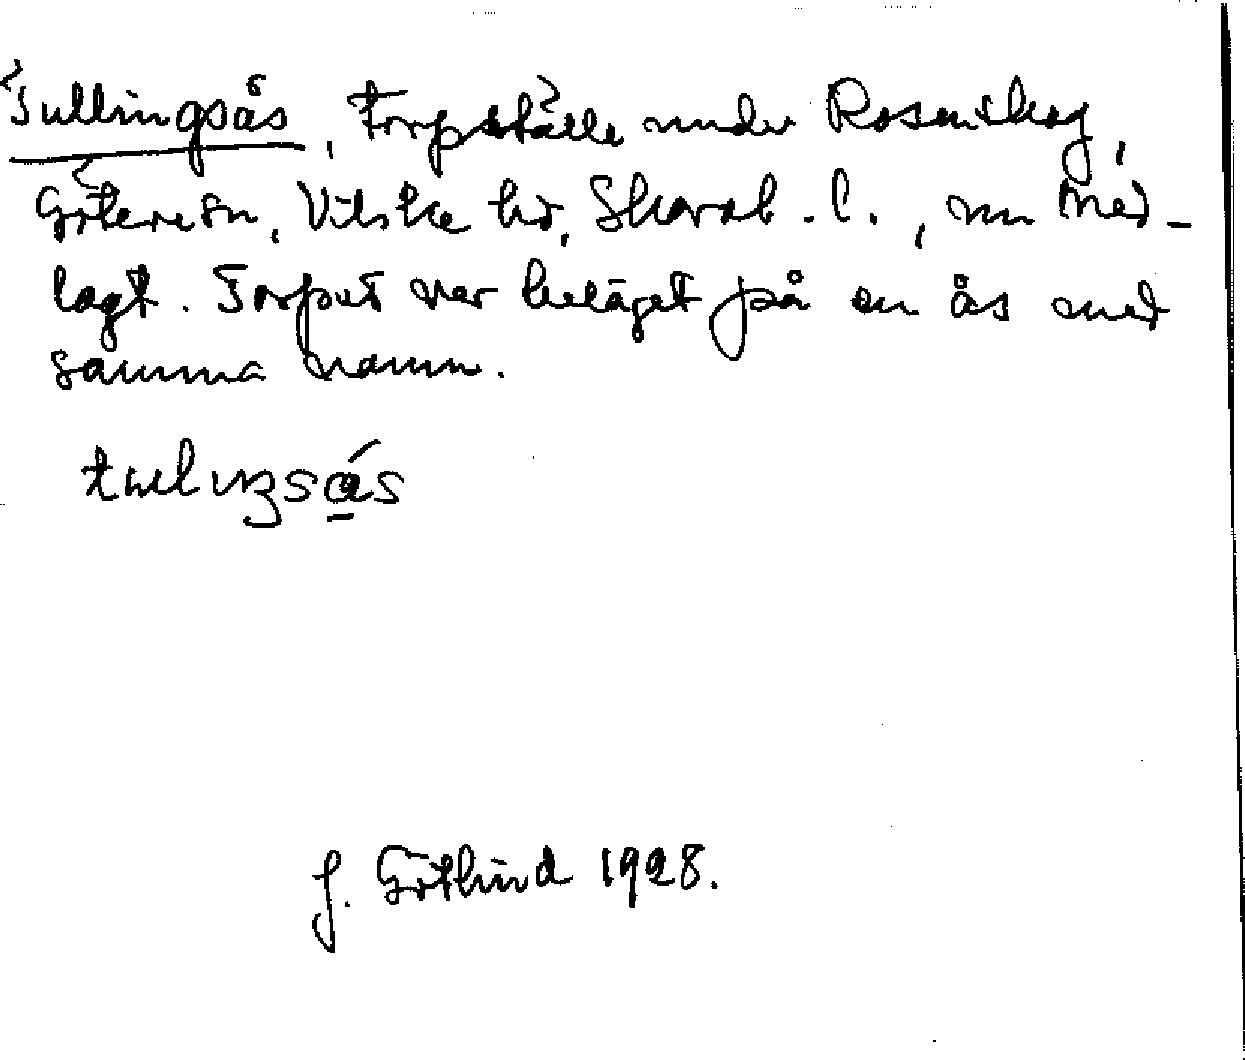 Tullingsås, Torpställe under Rosenskog,
Göteve sn, Vilske hd, Skarab. l., nu ned-
lagt. Torpet var beläget på en ås med
samma namn.
J. Götlind 1928.